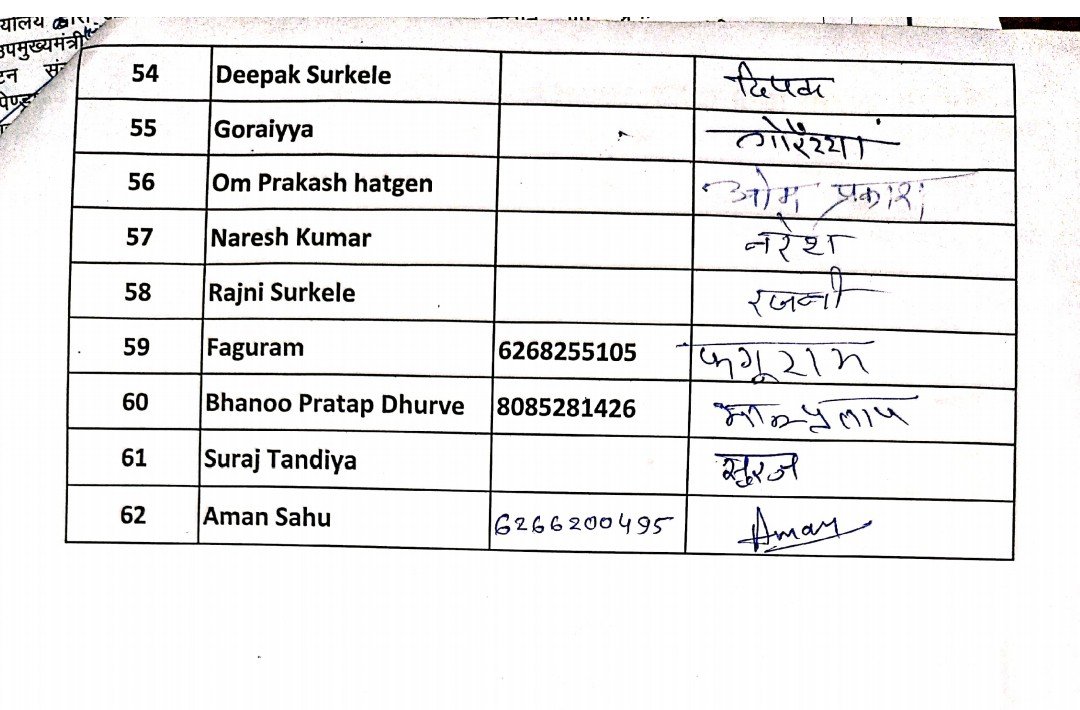 यालय
उपमुख्यमंत्री
टन
54 Deepak Surkele दिपक
55 Goraiyya गोरैय्या
56 Om Prakash hatgen ओम प्रकाश
57 Naresh Kumar नरेश
58 Rajni Surkele रजनी
59 Faguram 6268255105 फगूराम
60 Bhanoo Pratap Dhurve 8085281426 भानुप्रताप
61 Suraj Tandiya सुरज
62 Aman Sahu 6266200495 Aman